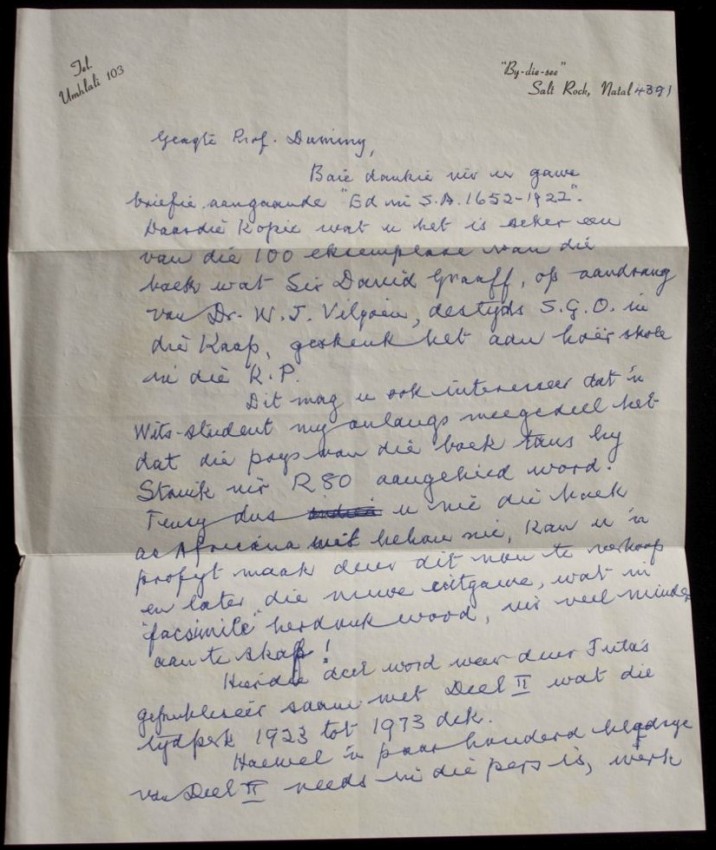 Tel.
Umhlali 103
"By-die-see"
Salt Rock, Natal 4391
Geagte Prof. Duminy,
Baie dankie vir u gawe
briefie aangaande "Ed in S.A. 1652-1922".
Daardie Kopie wat u het is seker een
van die 100 eksemplare van die
boek wat Sir David Graaff, op aandrang
van Dr. W.J. Viljoen, destyds S.G.O. in
die Kaap, geskenk het aan hoër skole
in die K.P.
Dit mag u ook interesseer dat 'n
Wits-student my onlangs meegedeel het
dat die prys van die boek tans by
Struik vir R80 aangebied word.
Tensy dus u nie die boek
as Africana wil behou nie, kan u 'n
profyt maak deur dit nou te verkoop
en later die nuwe uitgawe, wat in
"facsimile" herdruk word, vir veel minder
aan te skaf!
Hierdie deel word weer deur Juta's
gepubliseer saam met Deel II wat die
tydperk 1923 tot 1973 dek.
Hoewel 'n paar honderd bladsye
van Deel II reeds in die pers is, werk